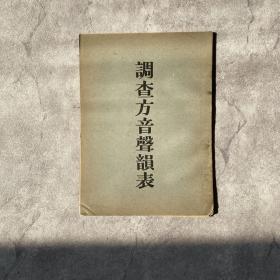 調查方音聲韻表